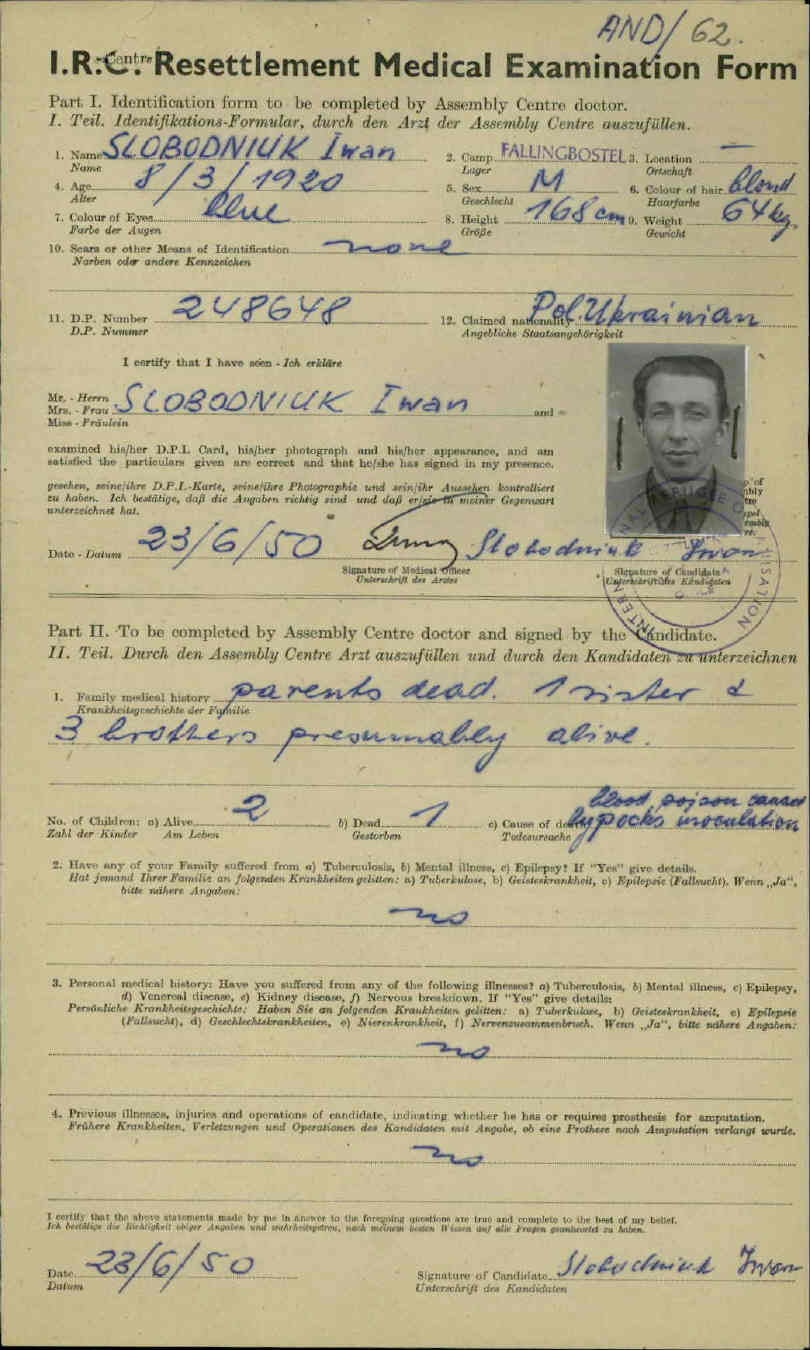 AND/62.
I.R.C. Centre Resettlement Medical Examination Form
Part I. Identification form to be completed by Assembly Centre doctor.
I. Teil. Identifikations-Formular, durch den Arzt der Assembly Centre auszufüllen.
1. Name SLOBODNIUK Iwan 2. Camp FALLINGBOSTEL 3. Location —
Name Lager Ortschaft
4. Age 8/3/1920 5. Sex M 6. Colour of hair blond
Alter Geschlecht Haarfarbe
7. Colour of Eyes blue 8. Height 168 cm 9. Weight 64 kg.
Farbe der Augen Größe Gewicht
10. Scars or other Means of Identification none
Narben oder andere Kennzeichen
11. D.P. Number 248648 12. Claimed nationality Pol. Ukrainian
D.P. Nummer Angebliche Staatsangehörigkeit
I certify that I have seen - Ich erkläre
Mr. - Herrn
Mrs. - Frau SLOBODNIUK Iwan and
Miss - Fräulein
examined his/her D.P.I. Card, his/her photograph and his/her appearance, and am
satisfied the particulars given are correct and that he/she has signed in my presence.
gesehen, seine/ihre D.P.I.-Karte, seine/ihre Photographie und sein/ihr Aussehen kontrolliert
zu haben. Ich bestätige, daß die Angaben richtig sind und daß er/sie in meiner Gegenwart
unterzeichnet hat.
Date - Datum 23/6/50 Slobodniuk Iwan
Signature of Medical Officer Signature of Candidate
Unterschrift des Arztes Unterschrift des Kandidaten
Part II. To be completed by Assembly Centre doctor and signed by the Candidate.
II. Teil. Durch den Assembly Centre Arzt auszufüllen und durch den Kandidaten zu unterzeichnen
1. Family medical history parents dead. 1 sister &
Krankheitsgeschichte der Familie
3 brothers presumably alive.
blood poison caused
No. of Children: a) Alive 2 b) Dead 1 c) Cause of death by pocks inoculation
Zahl der Kinder Am Leben Gestorben Todesursache
2. Have any of your Family suffered from a) Tuberculosis, b) Mental illness, c) Epilepsy? If "Yes" give details.
Hat jemand Ihrer Familie an folgenden Krankheiten gelitten: a) Tuberkulose, b) Geisteskrankheit, c) Epilepsie (Fallsucht). Wenn „Ja",
bitte nähere Angaben:
no
3. Personal medical history: Have you suffered from any of the following illnesses? a) Tuberculosis, b) Mental illness, c) Epilepsy,
d) Venereal disease, e) Kidney disease, f) Nervous breakdown. If "Yes" give details:
Persönliche Krankheitsgeschichte: Haben Sie an folgenden Krankheiten gelitten: a) Tuberkulose, b) Geisteskrankheit, c) Epilepsie
(Fallsucht), d) Geschlechtskrankheiten, e) Nierenkrankheit, f) Nervenzusammenbruch. Wenn „Ja", bitte nähere Angaben:
no
4. Previous illnesses, injuries and operations of candidate, indicating whether he has or requires prosthesis for amputation.
Frühere Krankheiten, Verletzungen und Operationen des Kandidaten mit Angabe, ob eine Prothese nach Amputation verlangt wurde.
no
I certify that the above statements made by me in answer to the foregoing questions are true and complete to the best of my belief.
Ich bestätige die Richtigkeit obiger Angaben und wahrheitsgetreu, nach meinem besten Wissen auf alle Fragen geantwortet zu haben.
Date 23/6/50 Signature of Candidate Slobodniuk Iwan
Datum Unterschrift des Kandidaten